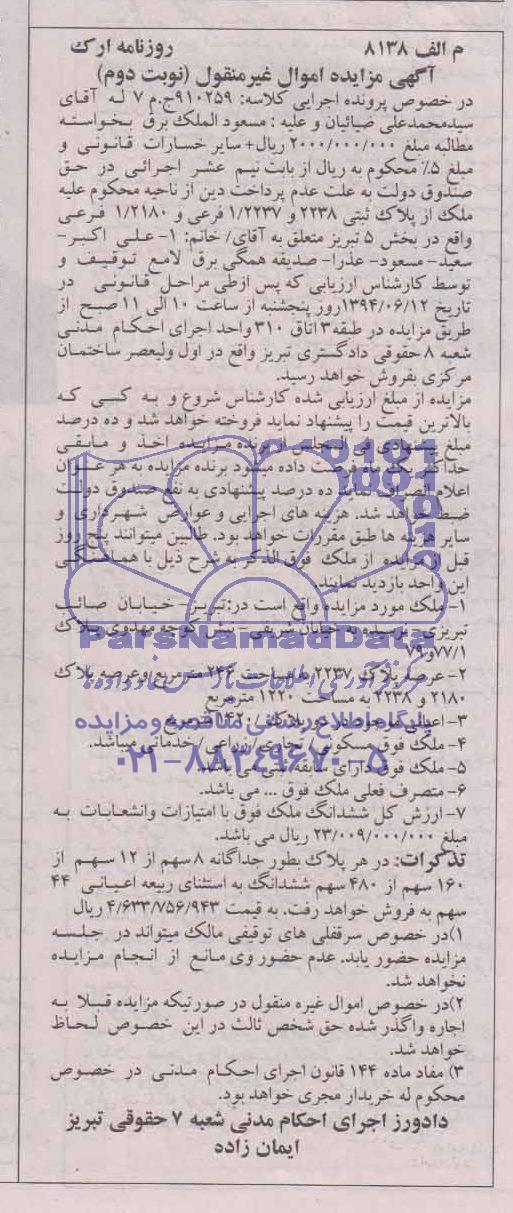 م الف ۸۱۳۸ روزنامه ارک
آگهی مزایده اموال غیرمنقول (نوبت دوم)
در خصوص پرونده اجرایی کلاسه: ۹۱۰۲۵۹ج.م ۷ له آقای
سیدمحمدعلی ضیائیان و علیه : مسعود الملک برق بخواسته
مطالبه مبلغ ۲۰۰۰/۰۰۰/۰۰۰ ریال+ سایر خسارات قانونی و
مبلغ ۵٪ محکوم به ریال از بابت نیم عشر اجرائی در حق
صندوق دولت به علت عدم پرداخت دین از ناحیه محکوم علیه
ملک از پلاک ثبتی ۲۲۳۸ و ۱/۲۲۳۷ فرعی و ۱/۲۱۸۰ فرعی
واقع در بخش ۵ تبریز متعلق به آقای/ خانم: ۱- علی اکبر-
سعید- مسعود- عذرا- صدیقه همگی برق لامع توقیف و
توسط کارشناس ارزیابی که پس ازطی مراحل قانونی در
تاریخ ۱۳۹۴/۰۶/۱۲روز پنجشنبه از ساعت ۱۰ الی ۱۱ صبح از
طریق مزایده در طبقه۳ اتاق ۳۱۰ واحد اجرای احکام مدنی
شعبه ۸ حقوقی دادگستری تبریز واقع در اول ولیعصر ساختمان
مرکزی بفروش خواهد رسید.
مزایده از مبلغ ارزیابی شده کارشناس شروع و به کسی که
بالاترین قیمت را پیشنهاد نماید فروخته خواهد شد و ده درصد
مبلغ پیشنهادی فی المجلس از برنده مزایده اخذ و مابقی
حداکثر یک ماه فرصت داده میشود برنده مزایده به هر عنوان
اعلام انصراف نماید ده درصد پیشنهادی به نفع صندوق دولت
ضبط خواهد شد. هزینه های اجرایی و عوارض شهرداری و
سایر هزینه ها طبق مقررات خواهد بود. طالبین میتوانند پنج روز
قبل از مزایده از ملک فوق الذکر به شرح ذیل با هماهنگی
این واحد بازدید نمایند.
۱- ملک مورد مزایده واقع است در:تبریز- خیابان صائب
تبریزی- نرسیده به خیابان شریفی- نبش کوچه مهدوی پلاک
۷۷/۱و۷۹
۲- عرصه پلاک ۲۲۳۷ به مساحت ۲۴۲ مترمربع وعرصه پلاک
۲۱۸۰ و ۲۲۳۸ به مساحت ۱۲۲۰ مترمربع
۳- اعیانی موجود در دو پلاک ۴۲۰ مترمربع
۴- ملک فوق مسکونی / تجاری / زراعی / خدماتی میباشد.
۵- ملک فوق دارای سابقه ثبتی می باشد.
۶- متصرف فعلی ملک فوق ... می باشد.
۷- ارزش کل ششدانگ ملک فوق با امتیازات وانشعابات به
مبلغ ۲۳/۰۰۹/۰۰۰/۰۰۰ ریال می باشد.
تذکرات: در هر پلاک بطور جداگانه ۸ سهم از ۱۲ سهم از
۱۶۰ سهم از ۴۸۰ سهم ششدانگ به استثنای ربیعه اعیانی ۴۴
سهم به فروش خواهد رفت. به قیمت ۴/۶۳۳/۷۵۶/۹۴۳ ریال
۱)در خصوص سرقفلی های توقیفی مالک میتواند در جلسه
مزایده حضور یابد. عدم حضور وی مانع از انجام مزایده
نخواهد شد.
۲)در خصوص اموال غیره منقول در صورتیکه مزایده قبلا به
اجاره واگذر شده حق شخص ثالث در این خصوص لحاظ
خواهد شد.
۳) مفاد ماده ۱۴۴ قانون اجرای احکام مدنی در خصوص
محکوم له خریدار مجری خواهد بود.
دادورز اجرای احکام مدنی شعبه ۷ حقوقی تبریز
ایمان زاده
ParsNamadData
پایگاه اطلاع رسانی مناقصه و مزایده
۰۲۱-۸۸۳۴۹۶۷۰-۵